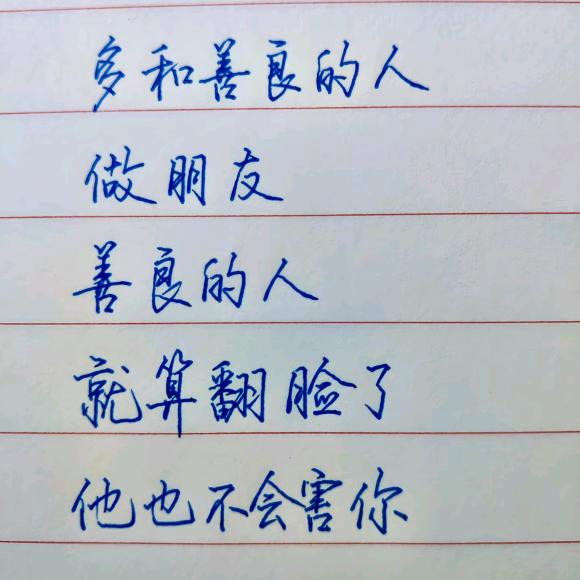 多和善良的人
做朋友
善良的人
就算翻脸了
他也不会害你